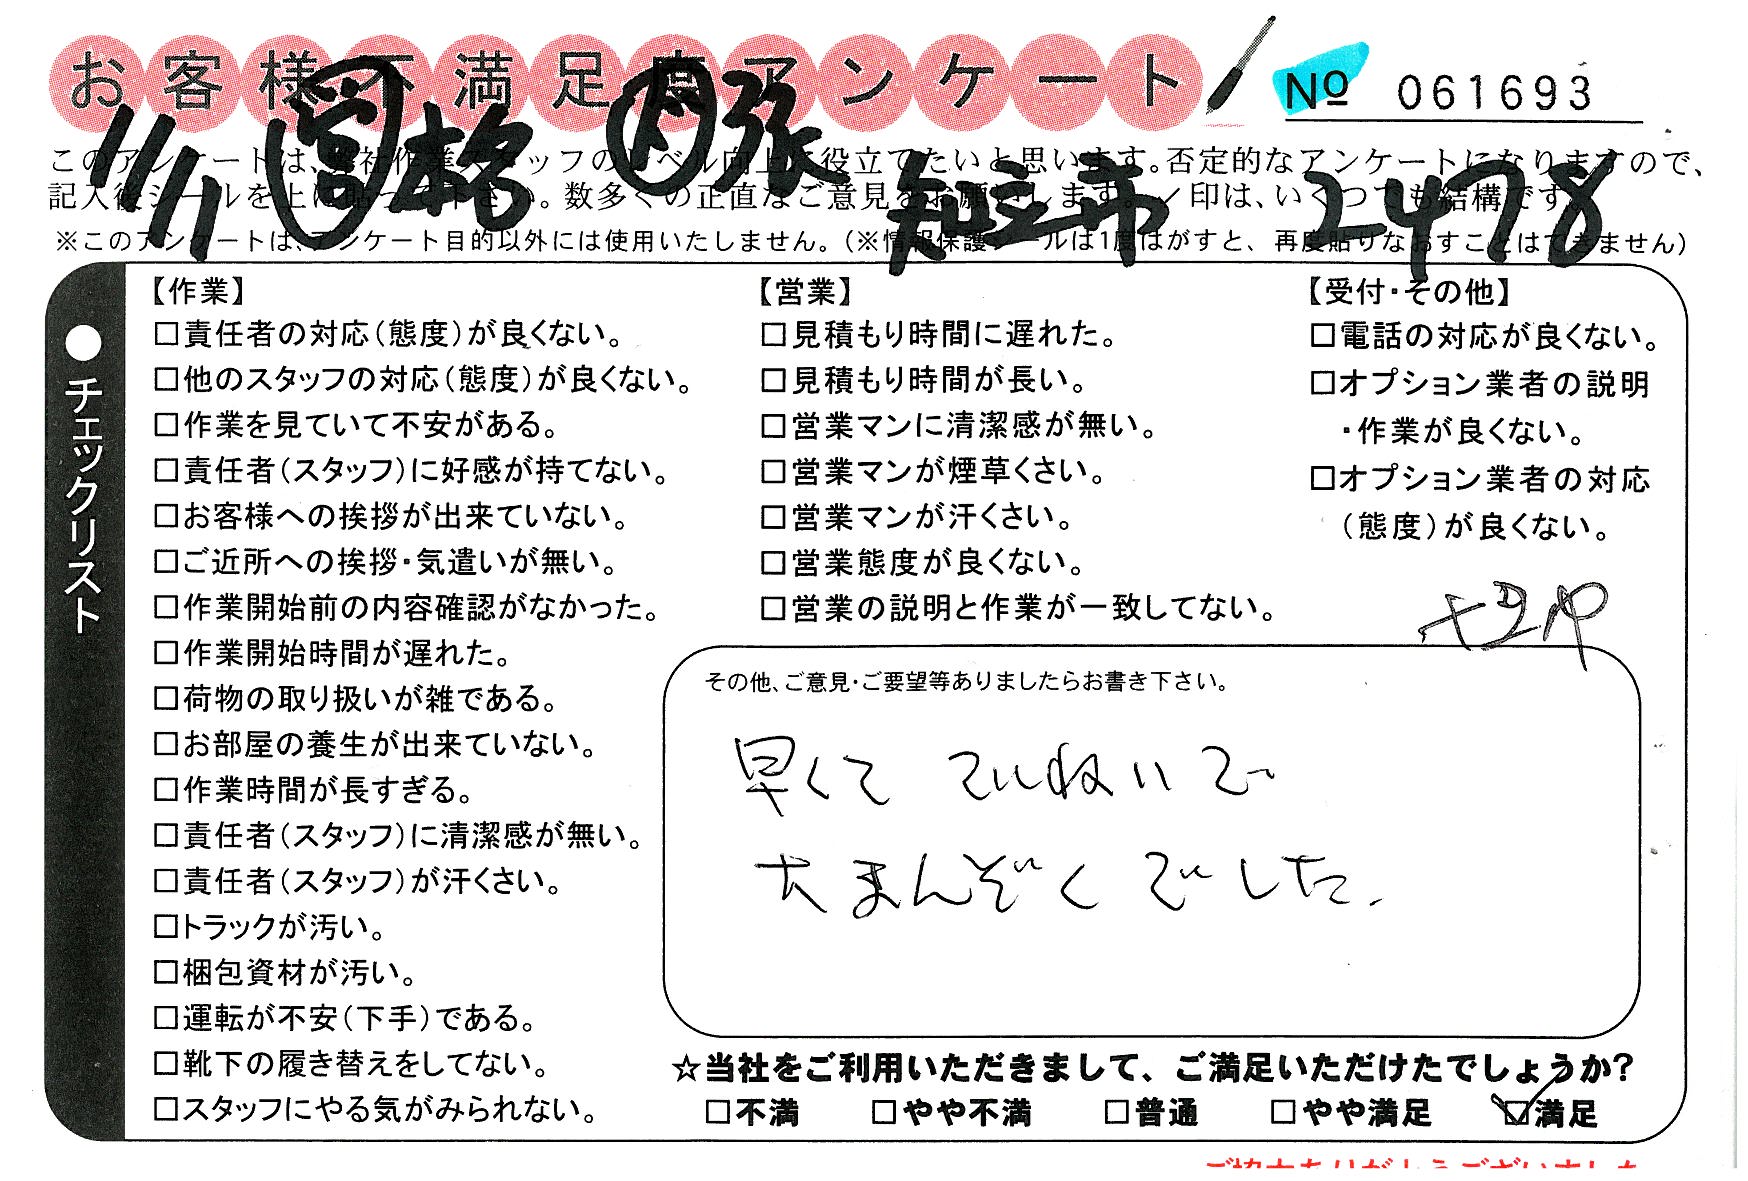 お客様不満足度アンケート
№ 061693
11/1
知立市
2478
このアンケートは、 社作業スタッフのレベル向上 役立てたいと思います。否定的なアンケートになりますので、
記入後シールを上に貼って下さい。数多くの正直なご意見をお願いします。／印は、いくつでも結構です。
※このアンケートは、アンケート目的以外には使用いたしません。(※情報保護シールは1度はがすと、再度貼りなおすことはできません)
●チェックリスト
【作業】
□責任者の対応(態度)が良くない。
□他のスタッフの対応(態度)が良くない。
□作業を見ていて不安がある。
□責任者(スタッフ)に好感が持てない。
□お客様への挨拶が出来ていない。
□ご近所への挨拶・気遣いが無い。
□作業開始前の内容確認がなかった。
□作業開始時間が遅れた。
□荷物の取り扱いが雑である。
□お部屋の養生が出来ていない。
□作業時間が長すぎる。
□責任者(スタッフ)に清潔感が無い。
□責任者(スタッフ)が汗くさい。
□トラックが汚い。
□梱包資材が汚い。
□運転が不安(下手)である。
□靴下の履き替えをしてない。
□スタッフにやる気がみられない。
【営業】
□見積もり時間に遅れた。
□見積もり時間が長い。
□営業マンに清潔感が無い。
□営業マンが煙草くさい。
□営業マンが汗くさい。
□営業態度が良くない。
□営業の説明と作業が一致してない。
【受付・その他】
□電話の対応が良くない。
□オプション業者の説明
・作業が良くない。
□オプション業者の対応
(態度)が良くない。
その他、ご意見・ご要望等ありましたらお書き下さい。
早くて ていねいで
大まんぞくでした.
☆当社をご利用いただきまして、ご満足いただけたでしょうか?
□不満 □やや不満 □普通 □やや満足 ☑満足
ご協力ありがとうございました